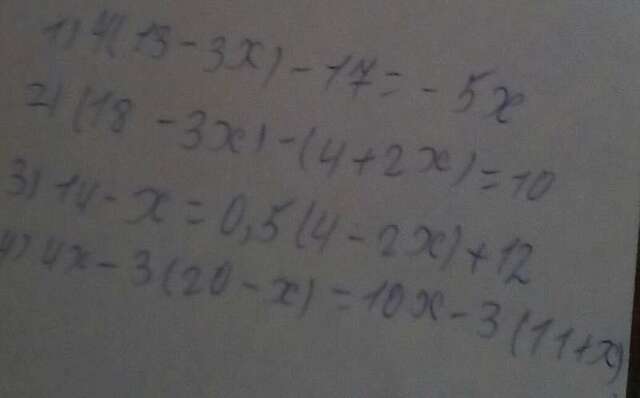 1) 4(13 - 3x) - 17 = - 5x
2) (18 - 3x) - (4 + 2x) = 10
3) 14 - x = 0,5(4 - 2x) + 12
4) 4x - 3(20 - x) = 10x - 3(11 + x)